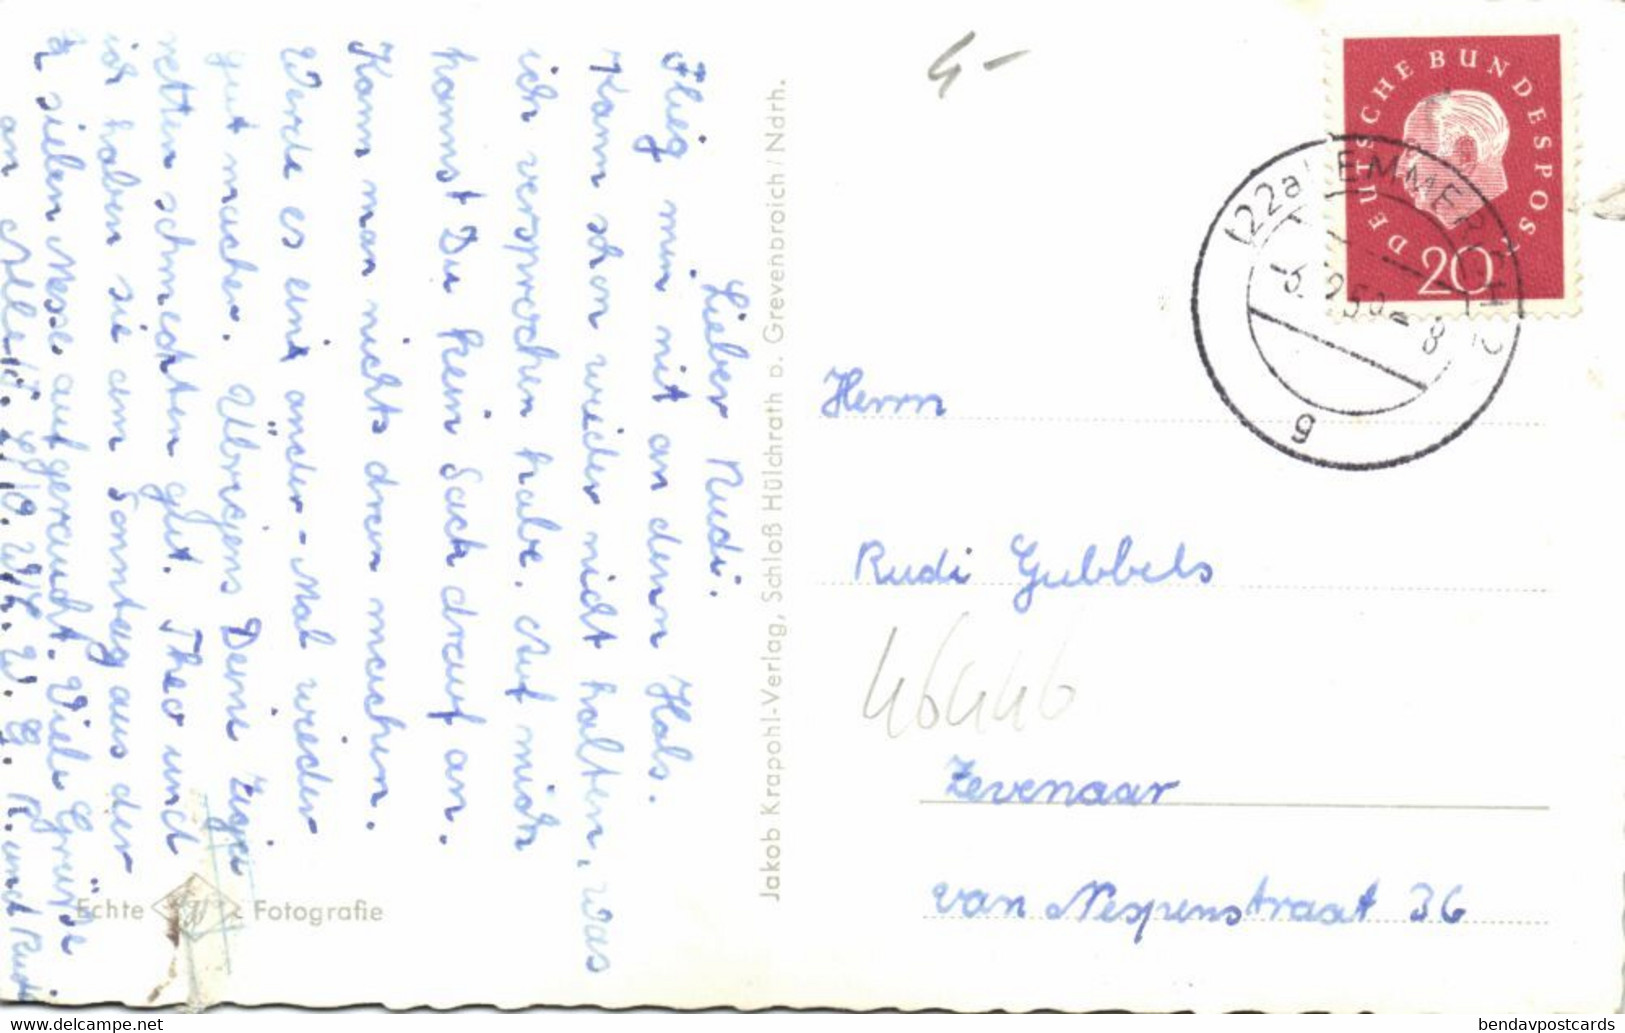 4-
DEUTSCHE BUNDESPOST
20
(22a) EMMERICH
g
Lieber Rudi.
Flieg mir nit an denn Hals.
Kann schon wieder nicht halten, was
ich versprochen habe. Auf mich
kannst Du kein Sach drauf an.
Kann man nichts dran machen.
Werde es eint ander-Mal wieder
gut machen. Übrigens Deine Ziga
retten schmeckten gut. Theo und
ich haben sie am Sonntag aus der
Messe aufgeraucht. Viele Grüße
an Alle
R. und Rudi
Jakob Krapohl-Verlag, Schloß Hülchrath b. Grevenbroich/Ndrh.
Echte Fotografie
Herrn
Rudi Gubbels
46446
Zevenaar
van Nespenstraat 36
www.delcampe.net
bendavpostcards